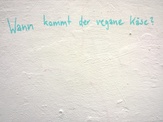 Wann kommt der vegane Käse?